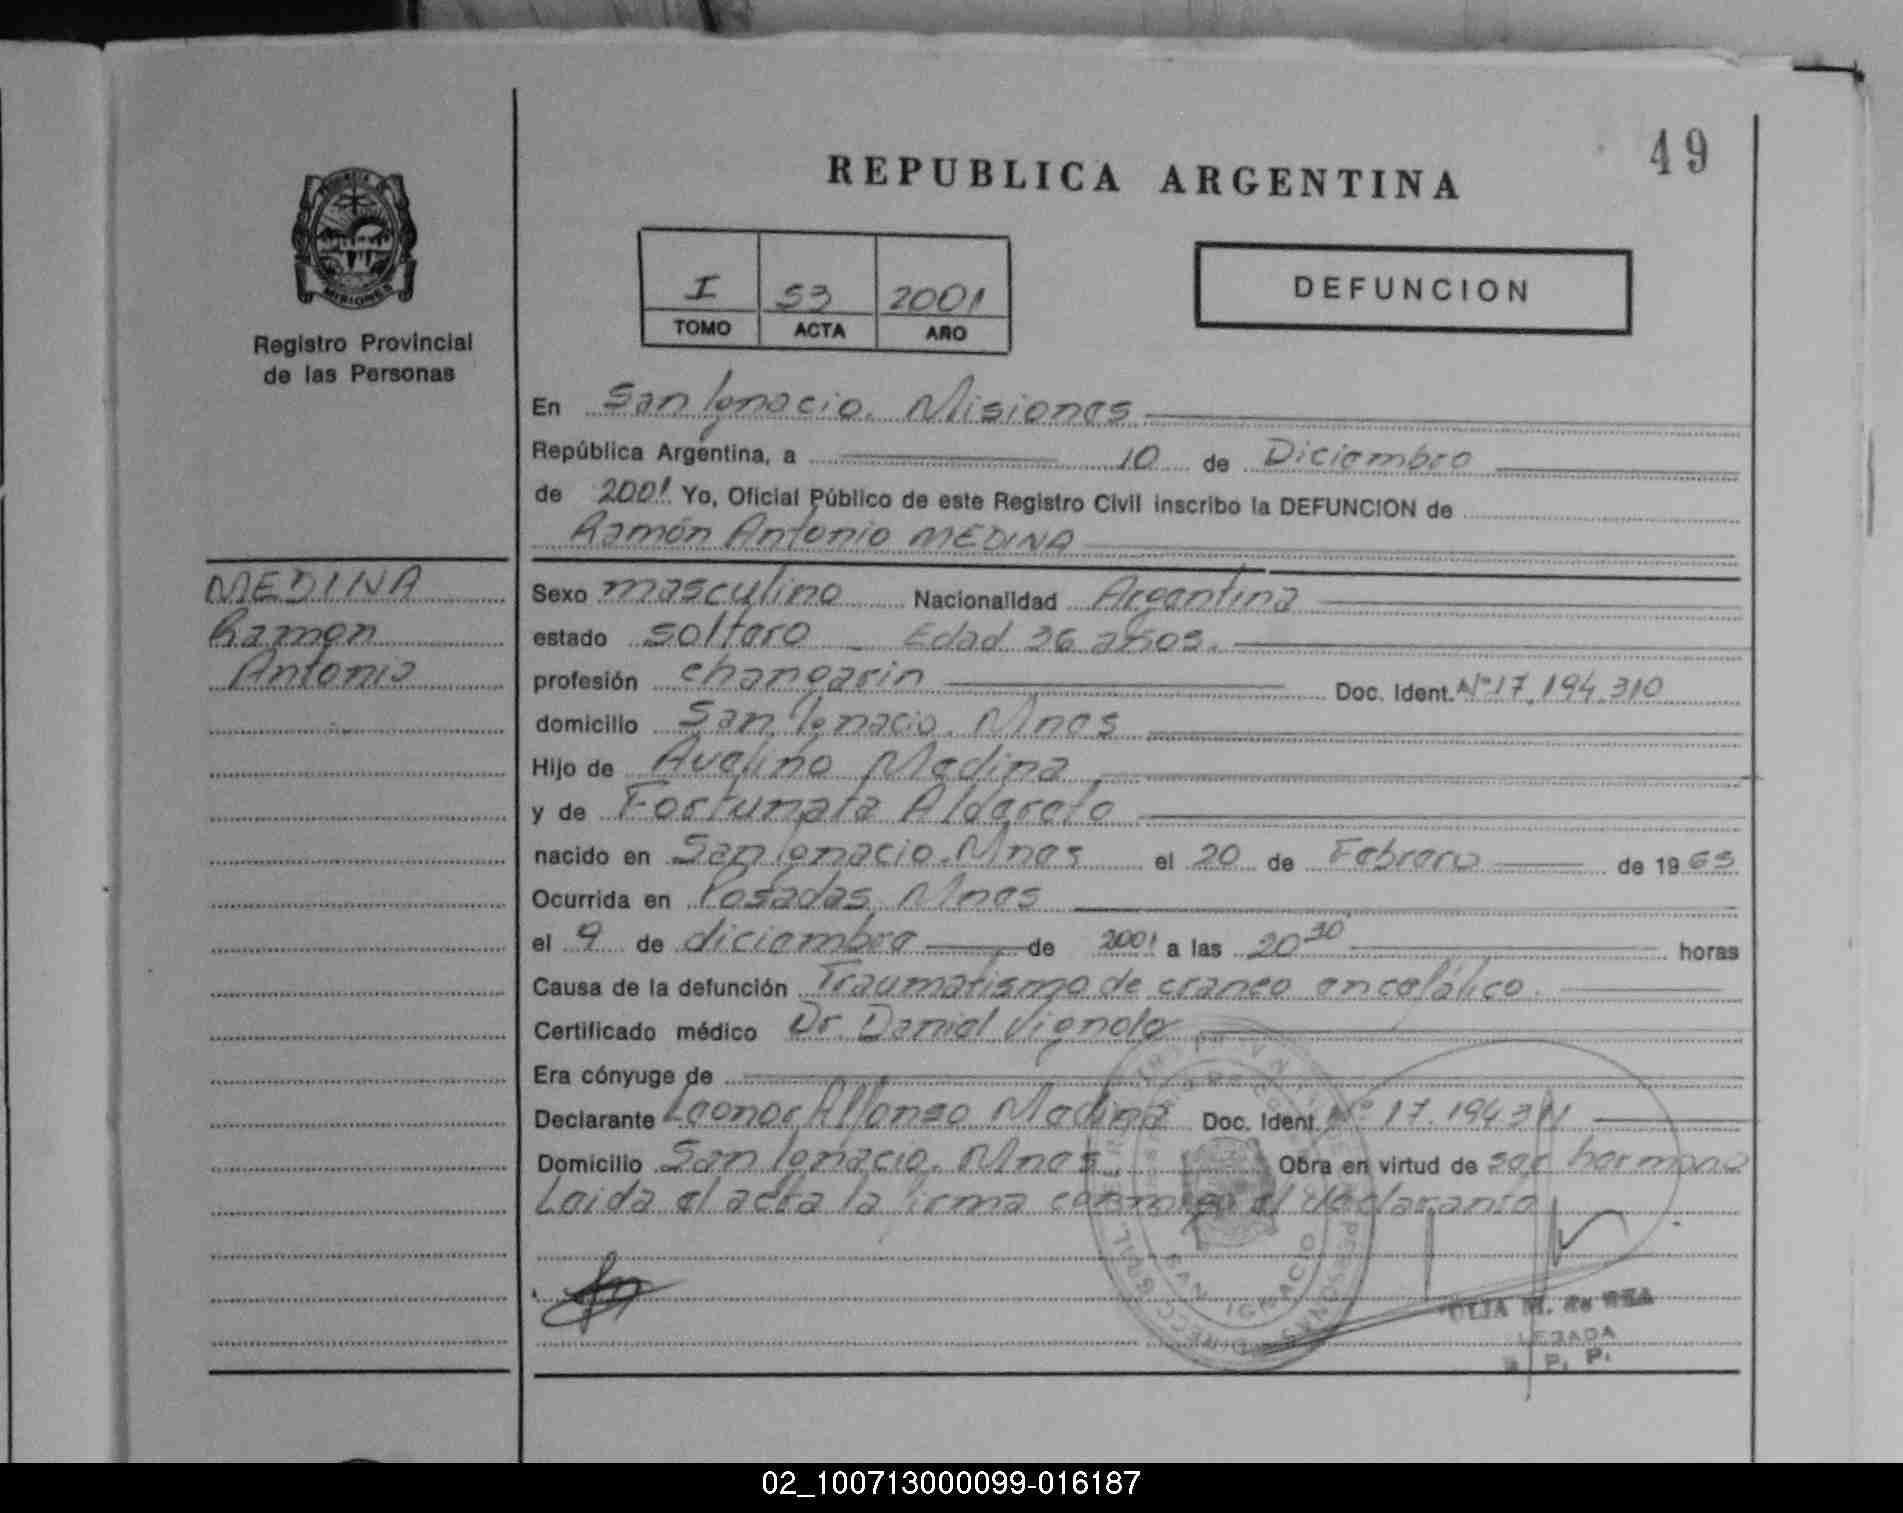 49
REPUBLICA ARGENTINA
PROVINCIA DE
MISIONES
Registro Provincial
de las Personas
I 53 2001
TOMO ACTA AÑO
DEFUNCION
En San Ignacio. Misiones
República Argentina, a 10 de Diciembre
de 2001 Yo, Oficial Público de este Registro Civil inscribo la DEFUNCION de
Ramón Antonio MEDINA
MEDINA
Ramon
Antonio
Sexo masculino Nacionalidad Argentina
estado soltero Edad 36 años.
profesión changarin Doc. Ident. Nº 17.194.310
domicilio San Ignacio. Mnes
Hijo de Avelino Medina
y de Fortunata Alderete
nacido en San Ignacio. Mnes el 20 de Febrero de 1965
Ocurrida en Posadas Mnes
el 9 de diciembre de 2001 a las 20 30 horas
Causa de la defunción Traumatismo de craneo encefálico.
Certificado médico Dr. Daniel Vignolo
Era cónyuge de
Declarante Leonor Alfonso Medina Doc. Ident. Nº 17.194.311
Domicilio San Ignacio. Mnes. Obra en virtud de ser hermano
Leida el acta la firma conmigo el declarante
SAN IGNACIO
R. P. P.
02_100713000099-016187